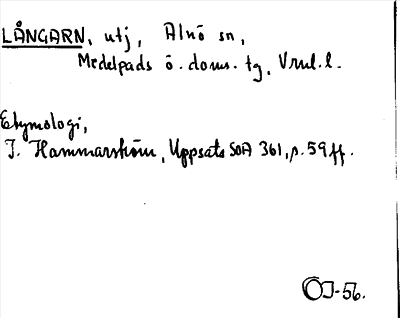 LÅNGARN, utj, Alnö sn,
Medelpads ö. doms. tg, Vrnl. l.
Etymologi,
I. Hammarström, Uppsats SOA 361, p. 59 ff.
OJ-56.